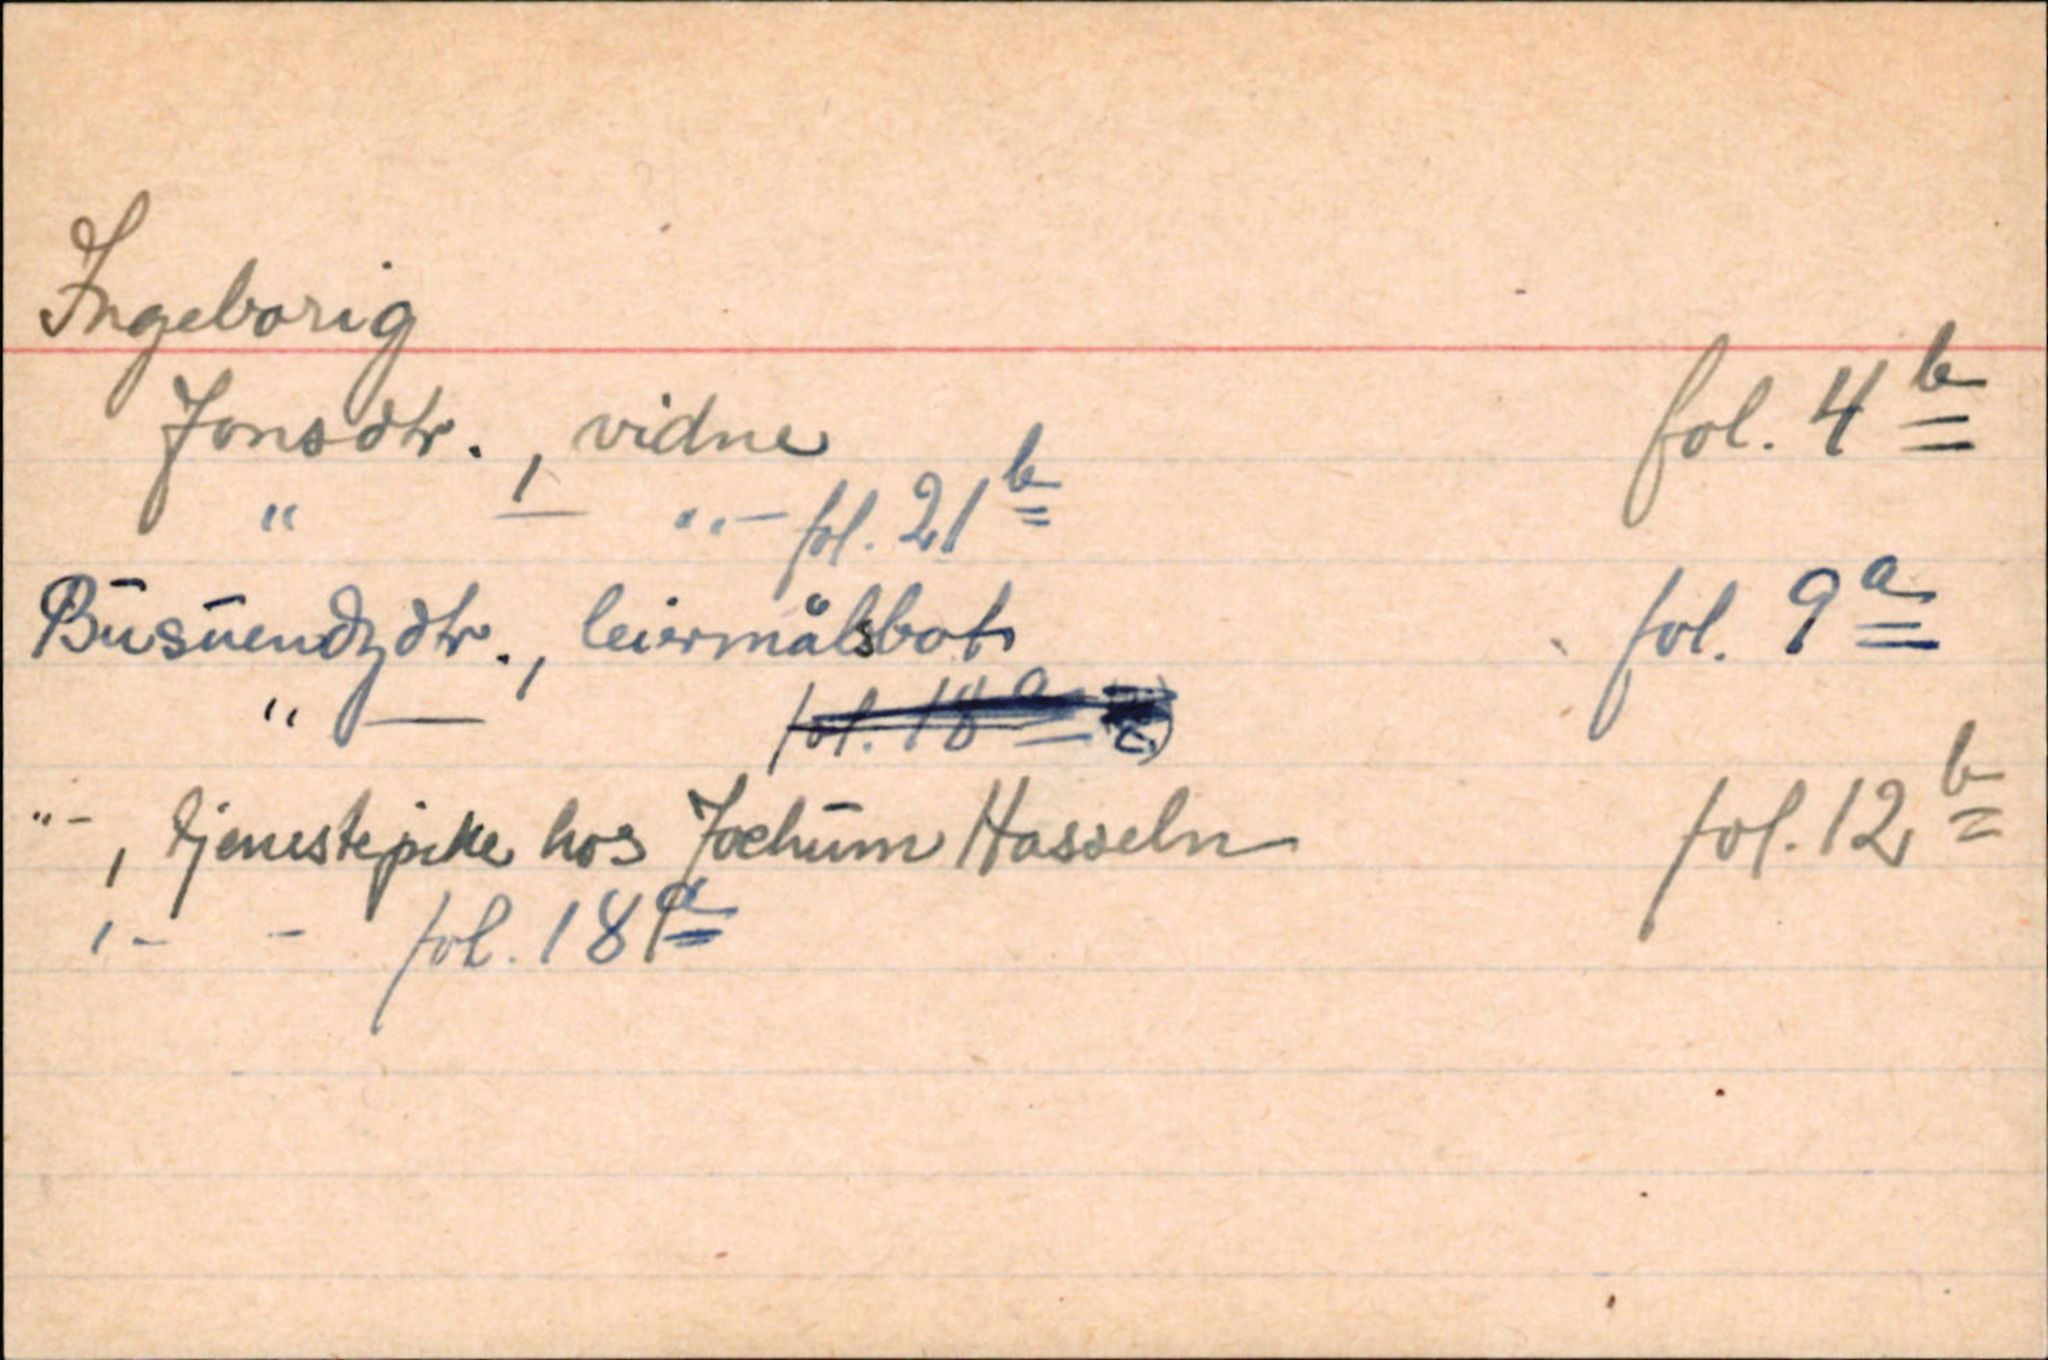 Ingeborig
Jonsdtr., vidne fol. 4b
" — "– fol. 21b
Busuendzdtr., leiermålsbot fol. 9a
" — fol. 18a
"–, tjenestepike hos Jochum Hasseln fol. 12b
, – – fol. 18a